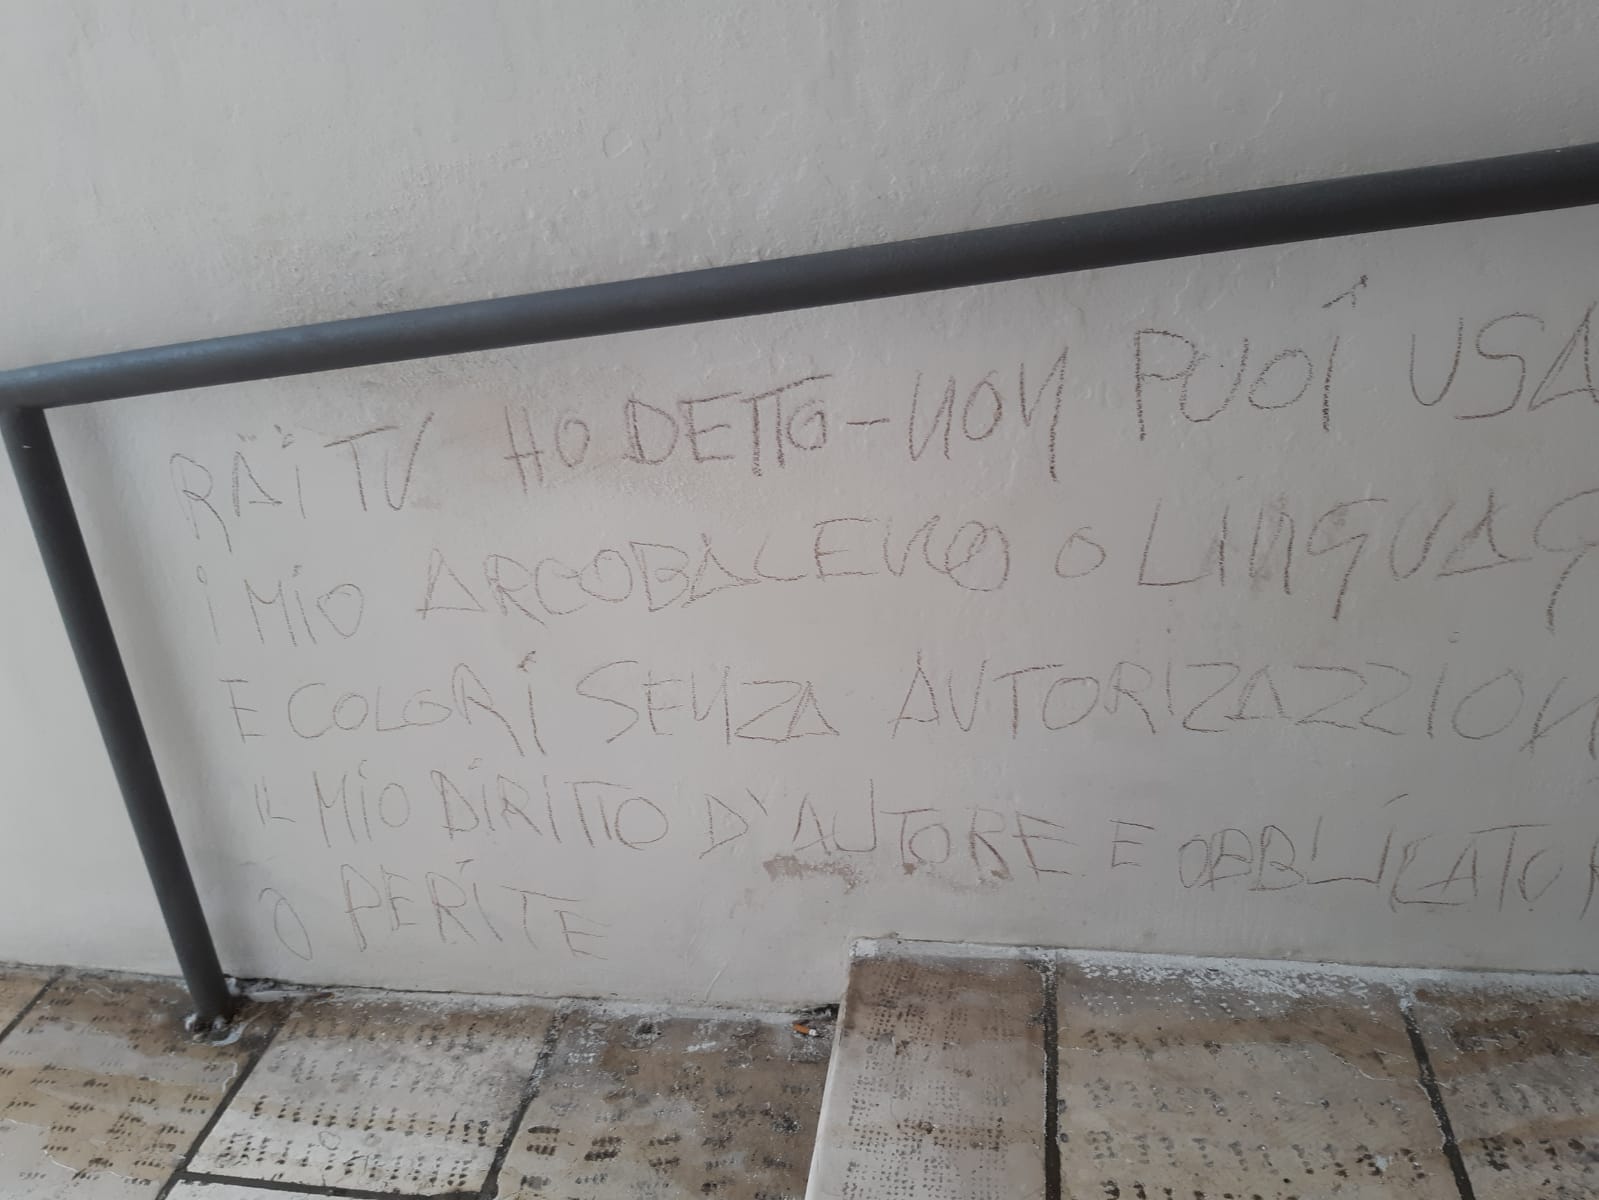 RAI TV HO DETTO - NON PUOI USA
I MIO ARCOBALENO O LINGUAG
E COLORI SENZA AUTORIZAZZION
IL MIO DIRITTO D'AUTORE E OBBLIGATOR
O PERITE